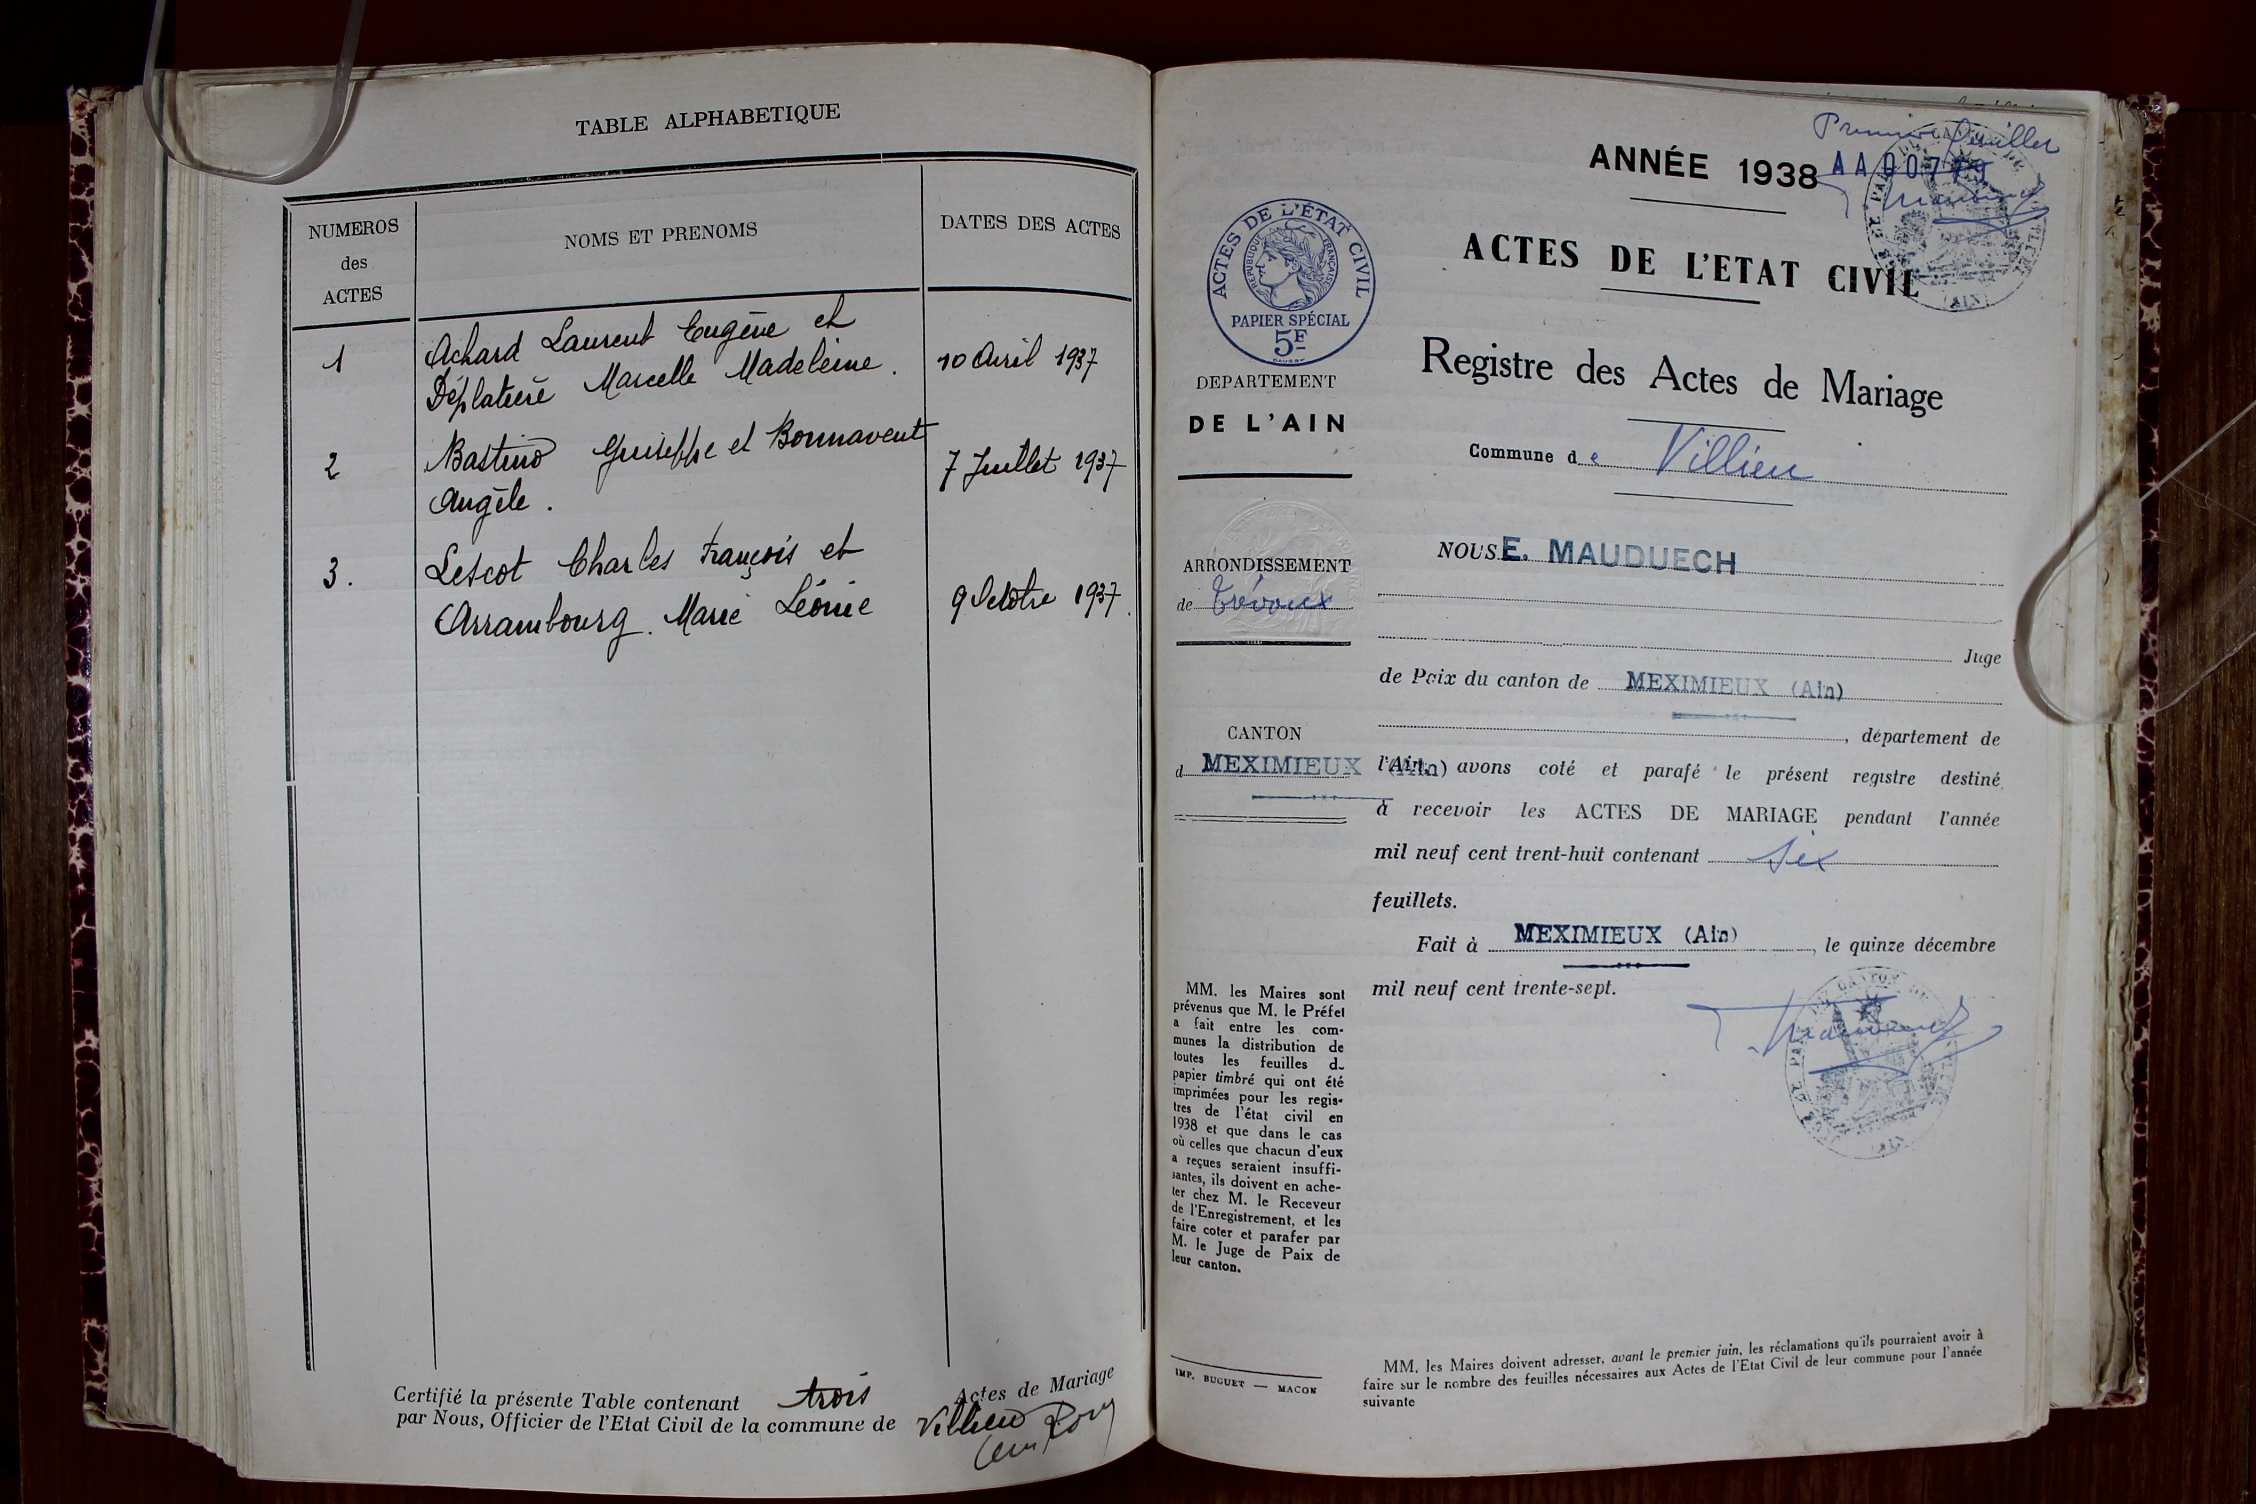 TABLE ALPHABETIQUE
NUMEROS
des
ACTES
NOMS ET PRENOMS
DATES DES ACTES
1
Achard Laurent Eugène et
Déplatière Marcelle Madeleine.
10 Avril 1937
2
Bastino Guiseppe et Bonnavent
Angèle.
7 Juillet 1937
3.
Lescot Charles François et
Arrambourg. Marie Léonie
9 Octobre 1937.
Certifié la présente Table contenant trois Actes de Mariage
par Nous, Officier de l'Etat Civil de la commune de Villieu
Premier feuillet
ANNÉE 1938
ACTES DE L'ÉTAT CIVIL
RÉPUBLIQUE FRANÇAISE
PAPIER SPÉCIAL
5F
DEPARTEMENT
DE L'AIN
ARRONDISSEMENT
de Trévoux
CANTON
d MEXIMIEUX (Ain)
ACTES DE L'ETAT CIVIL
Registre des Actes de Mariage
Commune de Villieu
NOUS E. MAUDUECH
Juge
de Paix du canton de MEXIMIEUX (Ain)
, département de
l'Ain, avons coté et parafé le présent registre destiné
à recevoir les ACTES DE MARIAGE pendant l'année
mil neuf cent trent-huit contenant six
feuillets.
Fait à MEXIMIEUX (Ain), le quinze décembre
mil neuf cent trente-sept.
MM. les Maires sont
prévenus que M. le Préfet
a fait entre les com-
munes la distribution de
toutes les feuilles du
papier timbré qui ont été
imprimées pour les regis-
tres de l'état civil en
1938 et que dans le cas
où celles que chacun d'eux
a reçues seraient insuffi-
santes, ils doivent en ache-
ter chez M. le Receveur
de l'Enregistrement, et les
faire coter et parafer par
M. le Juge de Paix de
leur canton.
IMP. BUGUET — MACON
MM. les Maires doivent adresser, avant le premier juin, les réclamations qu'ils pourraient avoir à
faire sur le nombre des feuilles nécessaires aux Actes de l'Etat Civil de leur commune pour l'année
suivante